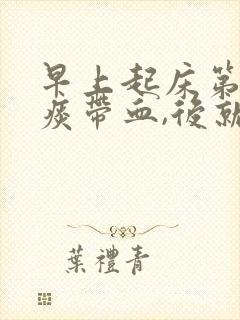 早上起床第
痰帶血,後就
葉禮青